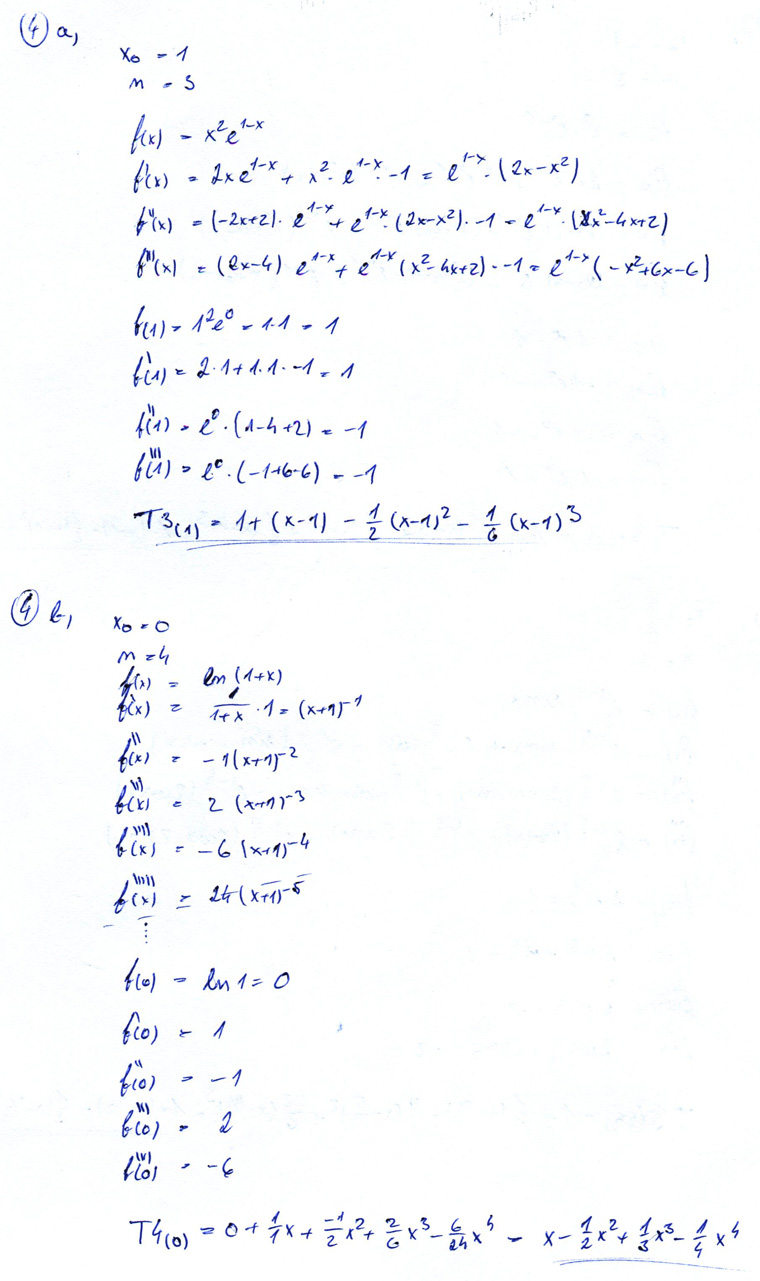 ④ a,
x₀ = 1
n = 3
f(x) = x²e^{1-x}
f'(x) = 2xe^{1-x} + x²·e^{1-x}·-1 = e^{1-x}·(2x-x²)
f''(x) = (-2x+2)·e^{1-x} + e^{1-x}·(2x-x²)·-1 = e^{1-x}·(x²-4x+2)
f'''(x) = (2x-4) e^{1-x} + e^{1-x}(x²-4x+2)·-1 = e^{1-x}(-x²+6x-6)
f(1) = 1²e⁰ = 1·1 = 1
f'(1) = 2·1+1·1·-1 = 1
f''(1) = e⁰·(1-4+2) = -1
f'''(1) = e⁰·(-1+6-6) = -1
T3₍₁₎ = 1 + (x-1) - 1/2 (x-1)² - 1/6 (x-1)³
④ b,
x₀ = 0
n = 4
f(x) = ln(1+x)
f'(x) = 1/(1+x) · 1 = (x+1)⁻¹
f''(x) = -1(x+1)⁻²
f'''(x) = 2 (x+1)⁻³
f''''(x) = -6 (x+1)⁻⁴
f'''''(x) = 24(x+1)⁻⁵
⋮
f(0) = ln 1 = 0
f'(0) = 1
f''(0) = -1
f'''(0) = 2
f''''(0) = -6
T4₍₀₎ = 0 + 1/1 x + -1/2 x² + 2/6 x³ - 6/24 x⁴ = x - 1/2 x² + 1/3 x³ - 1/4 x⁴